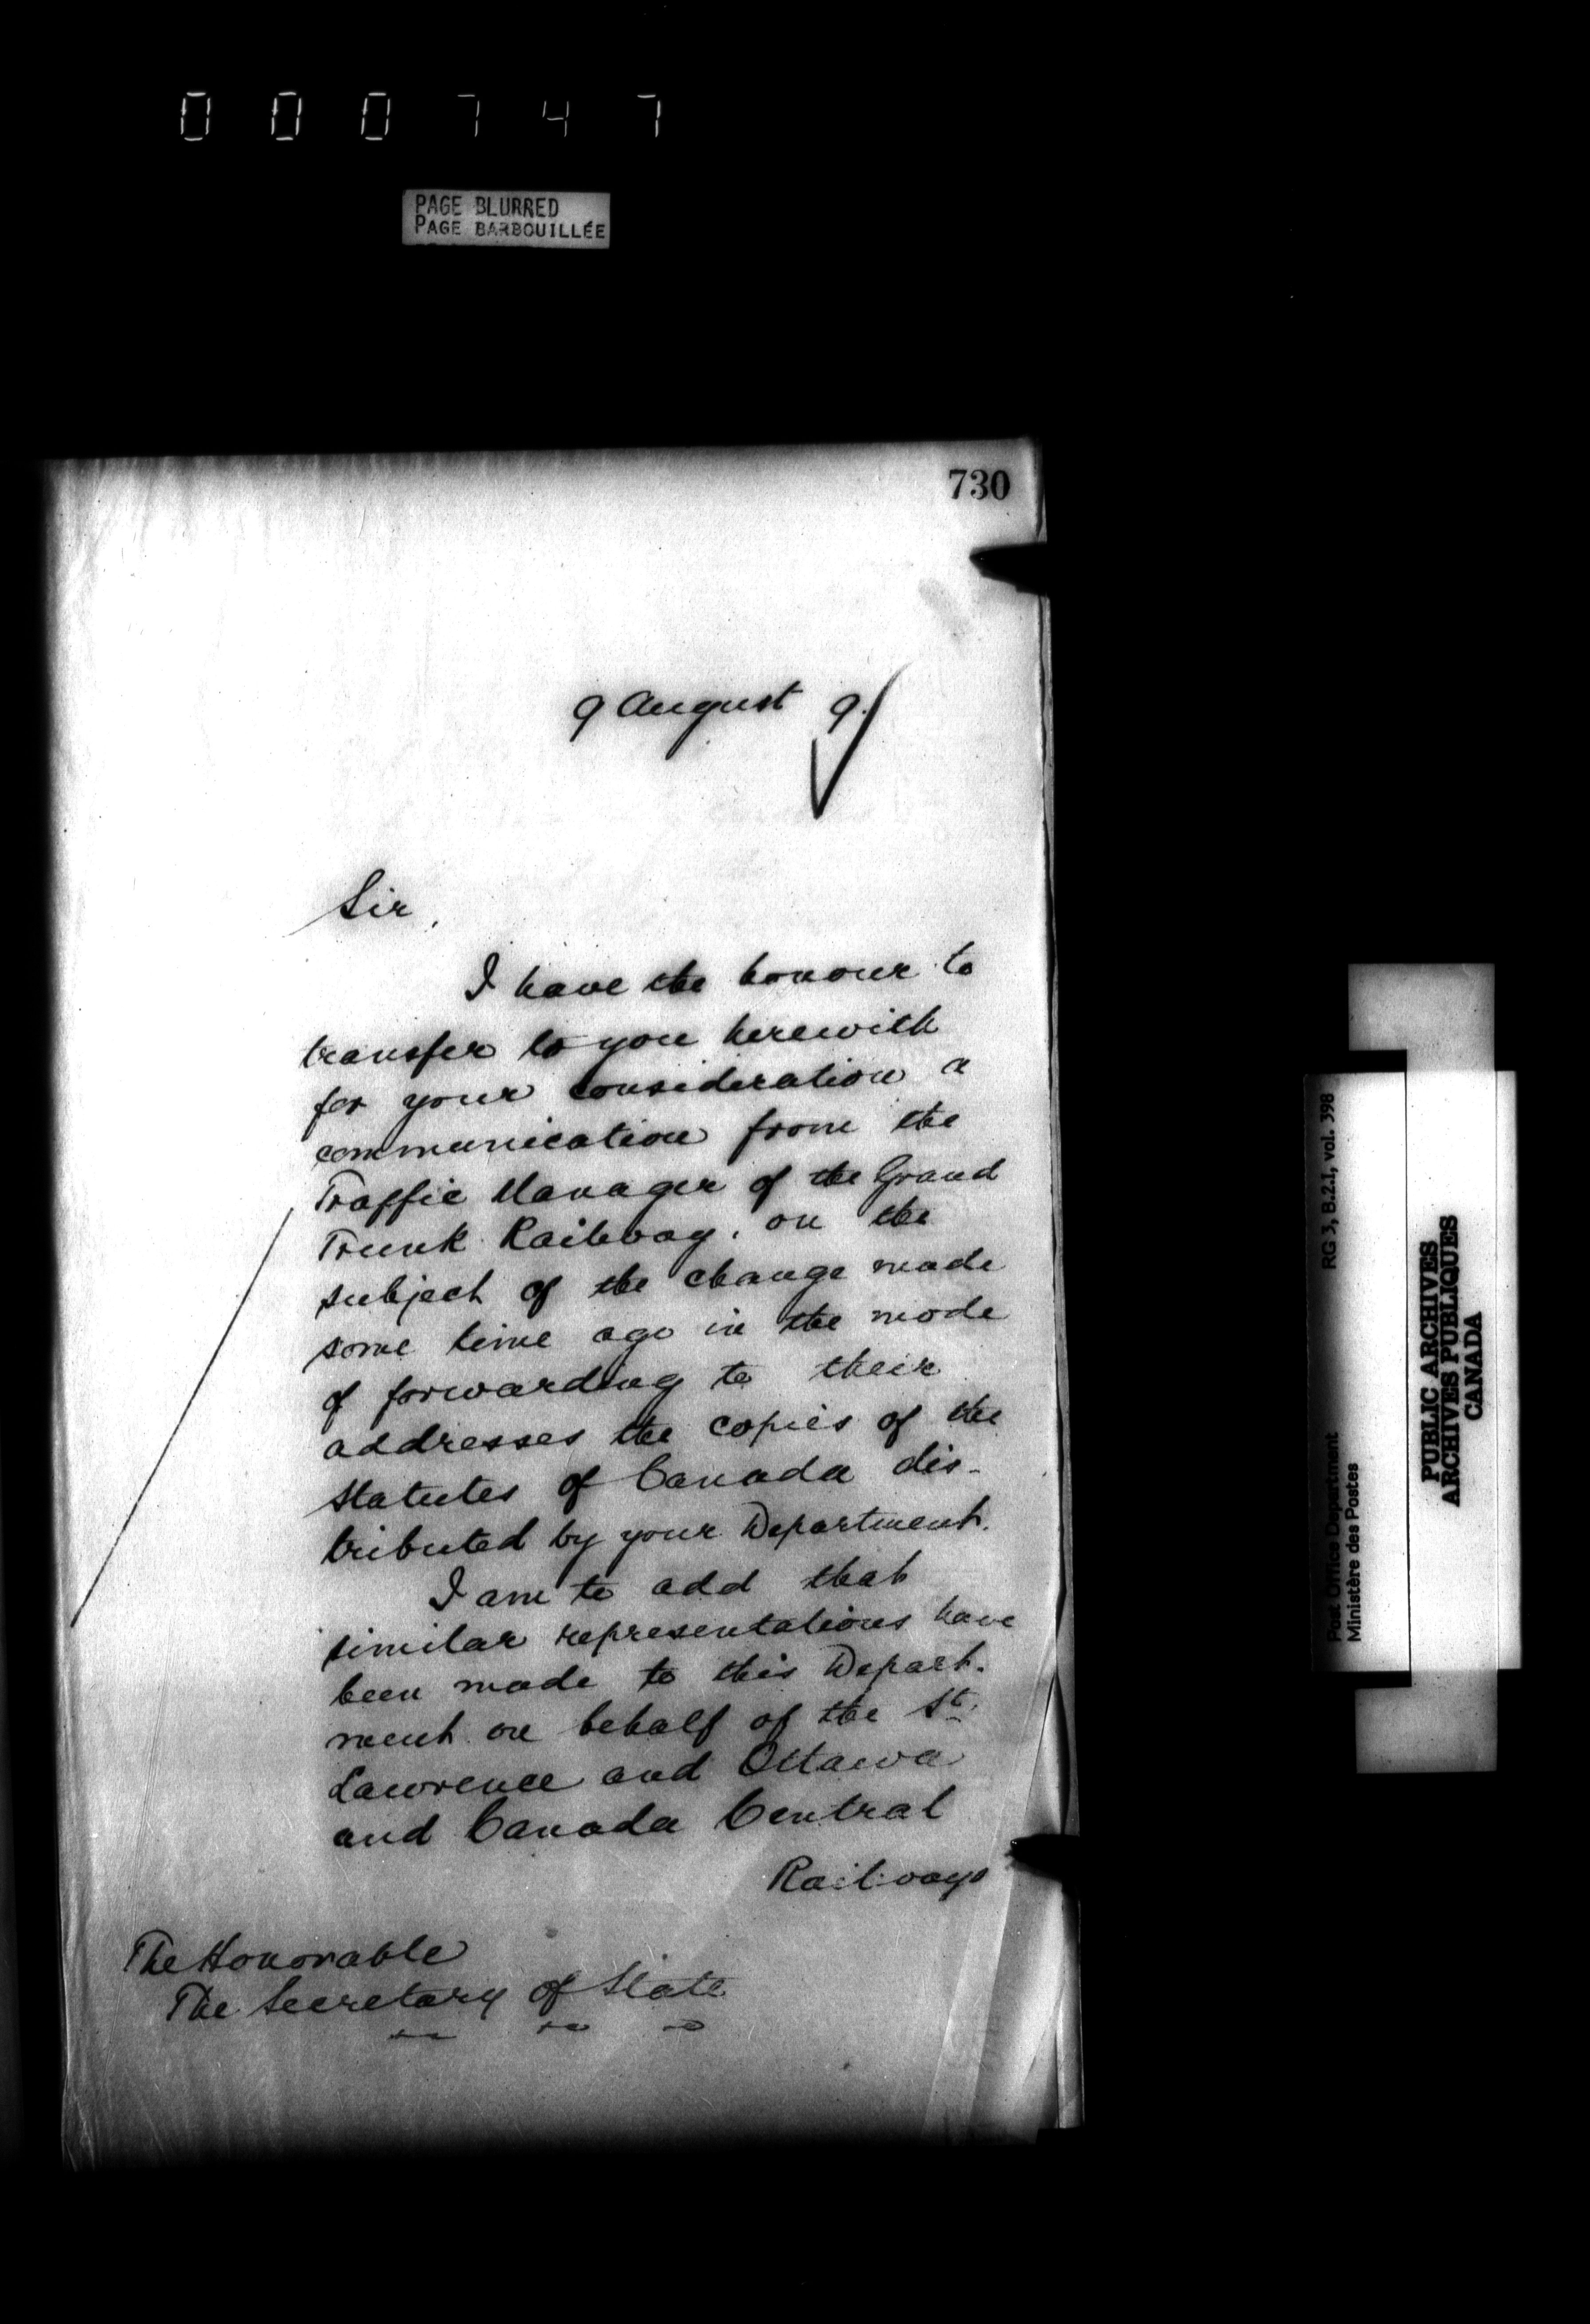 000747
PAGE BLURRED
PAGE BARBOUILLÉE
730
9 August 9.
Sir,
I have the honour to
transfer to you herewith
for your consideration a
communication from the
Traffic Manager of the Grand
Trunk Railway, on the
subject of the change made
some time ago in the mode
of forwarding to their
addresses the copies of the
Statutes of Canada dis-
tributed by your Department.
I am to add that
similar representations have
been made to this Depart-
ment on behalf of the St.
Lawrence and Ottawa
and Canada Central
Railways
The Honorable
The Secretary of State
RG 3, B.2.1, vol. 398
Post Office Department
Ministère des Postes
PUBLIC ARCHIVES
ARCHIVES PUBLIQUES
CANADA